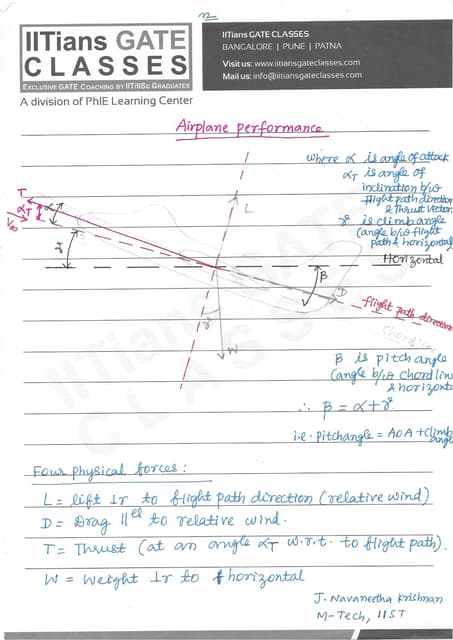 IITians GATE
CLASSES
EXCLUSIVE GATE COACHING BY IIT/IISC GRADUATES
A division of PhIE Learning Center
IITians GATE CLASSES
BANGALORE | PUNE | PATNA
Visit us: www.iitiansgateclasses.com
Mail us: info@iitiansgateclasses.com
Airplane performance
where α is angle of attack
αT is angle of
inclination b/w
flight path direction
& Thrust vector
γ is climb angle
(angle b/w flight
path & horizontal)
Horizontal
T
αT
α
V∞
γ
L
β
D
flight path direction
Chord line
γ
W
β is pitch angle
(angle b/w chord line
& horizontal
∴ β = α + γ
i.e. pitchangle = AOA + Climb
angle
Four physical forces :
L = lift ⊥r to flight path direction (relative wind)
D = Drag ||el to relative wind.
T = Thrust (at an angle αT w.r.t. to flight path).
W = Weight ⊥r to horizontal
J. Navaneetha Krishnan
M-Tech, IIST
IITians GATE
CLASSES